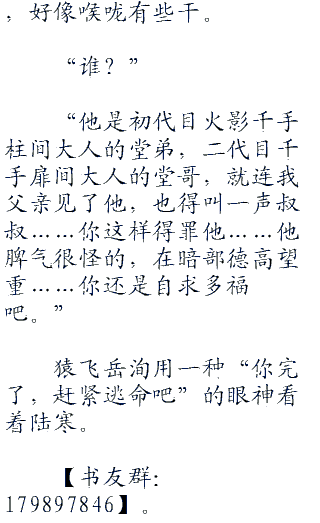 ，好像喉咙有些干。
“谁？”
“他是初代目火影千手
柱间大人的堂弟，二代目千
手扉间大人的堂哥，就连我
父亲见了他，也得叫一声叔
叔……你这样得罪他……他
脾气很怪的，在暗部德高望
重……你还是自求多福
吧。”
猿飞岳洵用一种“你完
了，赶紧逃命吧”的眼神看
着陆寒。
【书友群：
179897846】。